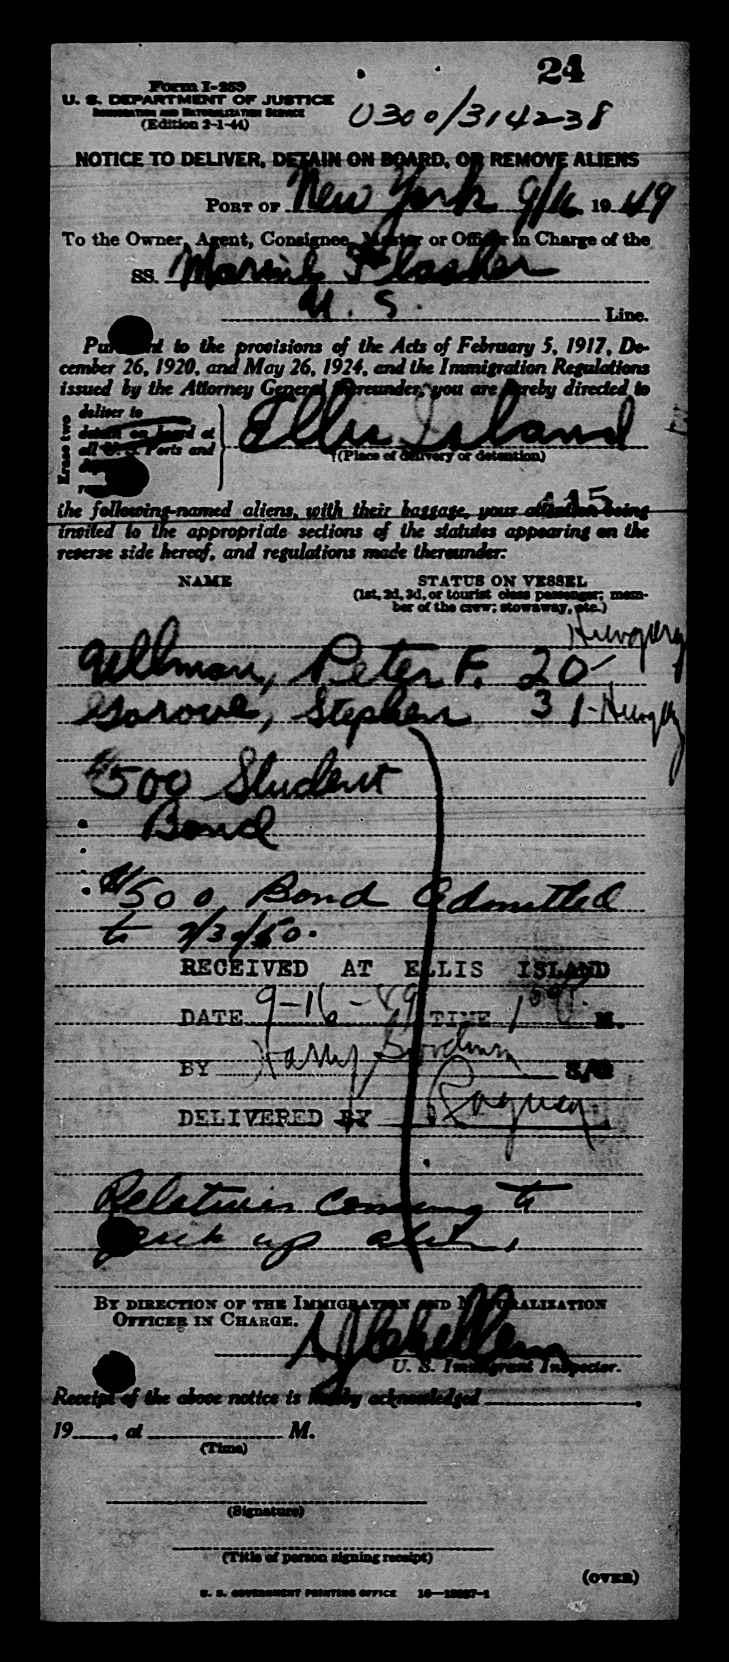 24
Form I-259
U. S. DEPARTMENT OF JUSTICE
IMMIGRATION AND NATURALIZATION SERVICE
(Edition 2-1-44)
0300/314238
NOTICE TO DELIVER, DETAIN ON BOARD, OR REMOVE ALIENS
PORT OF New York 9/16 1949
To the Owner, Agent, Consignee, Master or Officer in Charge of the
SS. Marine Flasher
U. S. Line.
Pursuant to the provisions of the Acts of February 5, 1917, De-
cember 26, 1920, and May 26, 1924, and the Immigration Regulations
issued by the Attorney General thereunder, you are hereby directed to
Erase two
deliver to
detain on board at
all U. S. Ports and
Ellis Island
(Place of delivery or detention)
445
the following-named aliens, with their baggage, your attention being
invited to the appropriate sections of the statutes appearing on the
reverse side hereof, and regulations made thereunder:
NAME STATUS ON VESSEL
(1st, 2d, 3d, or tourist class passenger; mem-
ber of the crew; stowaway, etc.)
Hungary
Ullman, Peter F. 20-
Stephen 31-Hungary
$500 Student
Bond
$500 Bond Admitted
to
RECEIVED AT ELLIS ISLAND
DATE 9-16-49 TIME M.
BY Harry
DELIVERED BY
Relatives coming to
pick up alien.
BY DIRECTION OF THE IMMIGRATION AND NATURALIZATION
OFFICER IN CHARGE.
U. S. Immigrant Inspector.
Receipt of the above notice is hereby acknowledged
19 , at M.
(Time)
(Signature)
(Title of person signing receipt)
(OVER)
U. S. GOVERNMENT PRINTING OFFICE